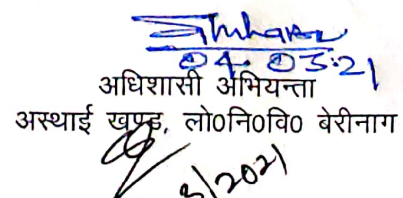 04.03.21
अधिशासी अभियन्ता
अस्थाई खण्ड, लो0नि0वि0 बेरीनाग
/2021